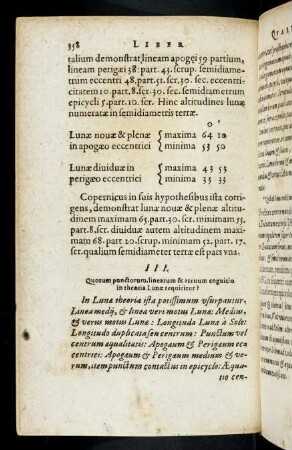 358 LIBER
talium demonstrat, lineam apogei 59 partium,
lineam perigæi 38. part. 43. scrup. semidiame-
trum eccentri 48. part. 51. scr. 30. sec. eccentri-
citatem 10. part. 8. scr. 30. sec. semidiametrum
epicycli 5. part. 10. scr. Hinc altitudines lunæ
numeratæ in semidiametris terræ.
o '
Lunæ nouæ & plenæ { maxima 64 10
in apogæo eccentrici { minima 53 50
Lunæ diuiduæ in { maxima 43 53
perigæo eccentrici { minima 33 33
Copernicus in suis hypothesibus ista corri-
gens, demonstrat lunæ nouæ & plenæ altitu-
dinem maximam 65. part. 30. scr. minimam 55.
part. 8. scr. diuiduæ autem altitudinem maxi-
mam 68. part 20. scrup. minimam 52. part. 17.
scr. qualium semidiameter terræ est pars vna.
III.
Quorum punctorum, linearum & arcuum cognitio
in theoria Lunæ requiritur?
In Lunæ theoria ista potissimum vsurpantur.
Linea medij, & linea veri motus Lunæ: Medius,
& verus motus Lunæ: Longitudo Lunæ à Sole:
Longitudo duplicata seu centrum: Punctum vel
centrum æqualitatis: Apogæum & Perigæum ec-
centrici: Apogæum & Perigæum medium & ve-
rum, item punctum contactus in epicyclo: Æqua-
tio cen-